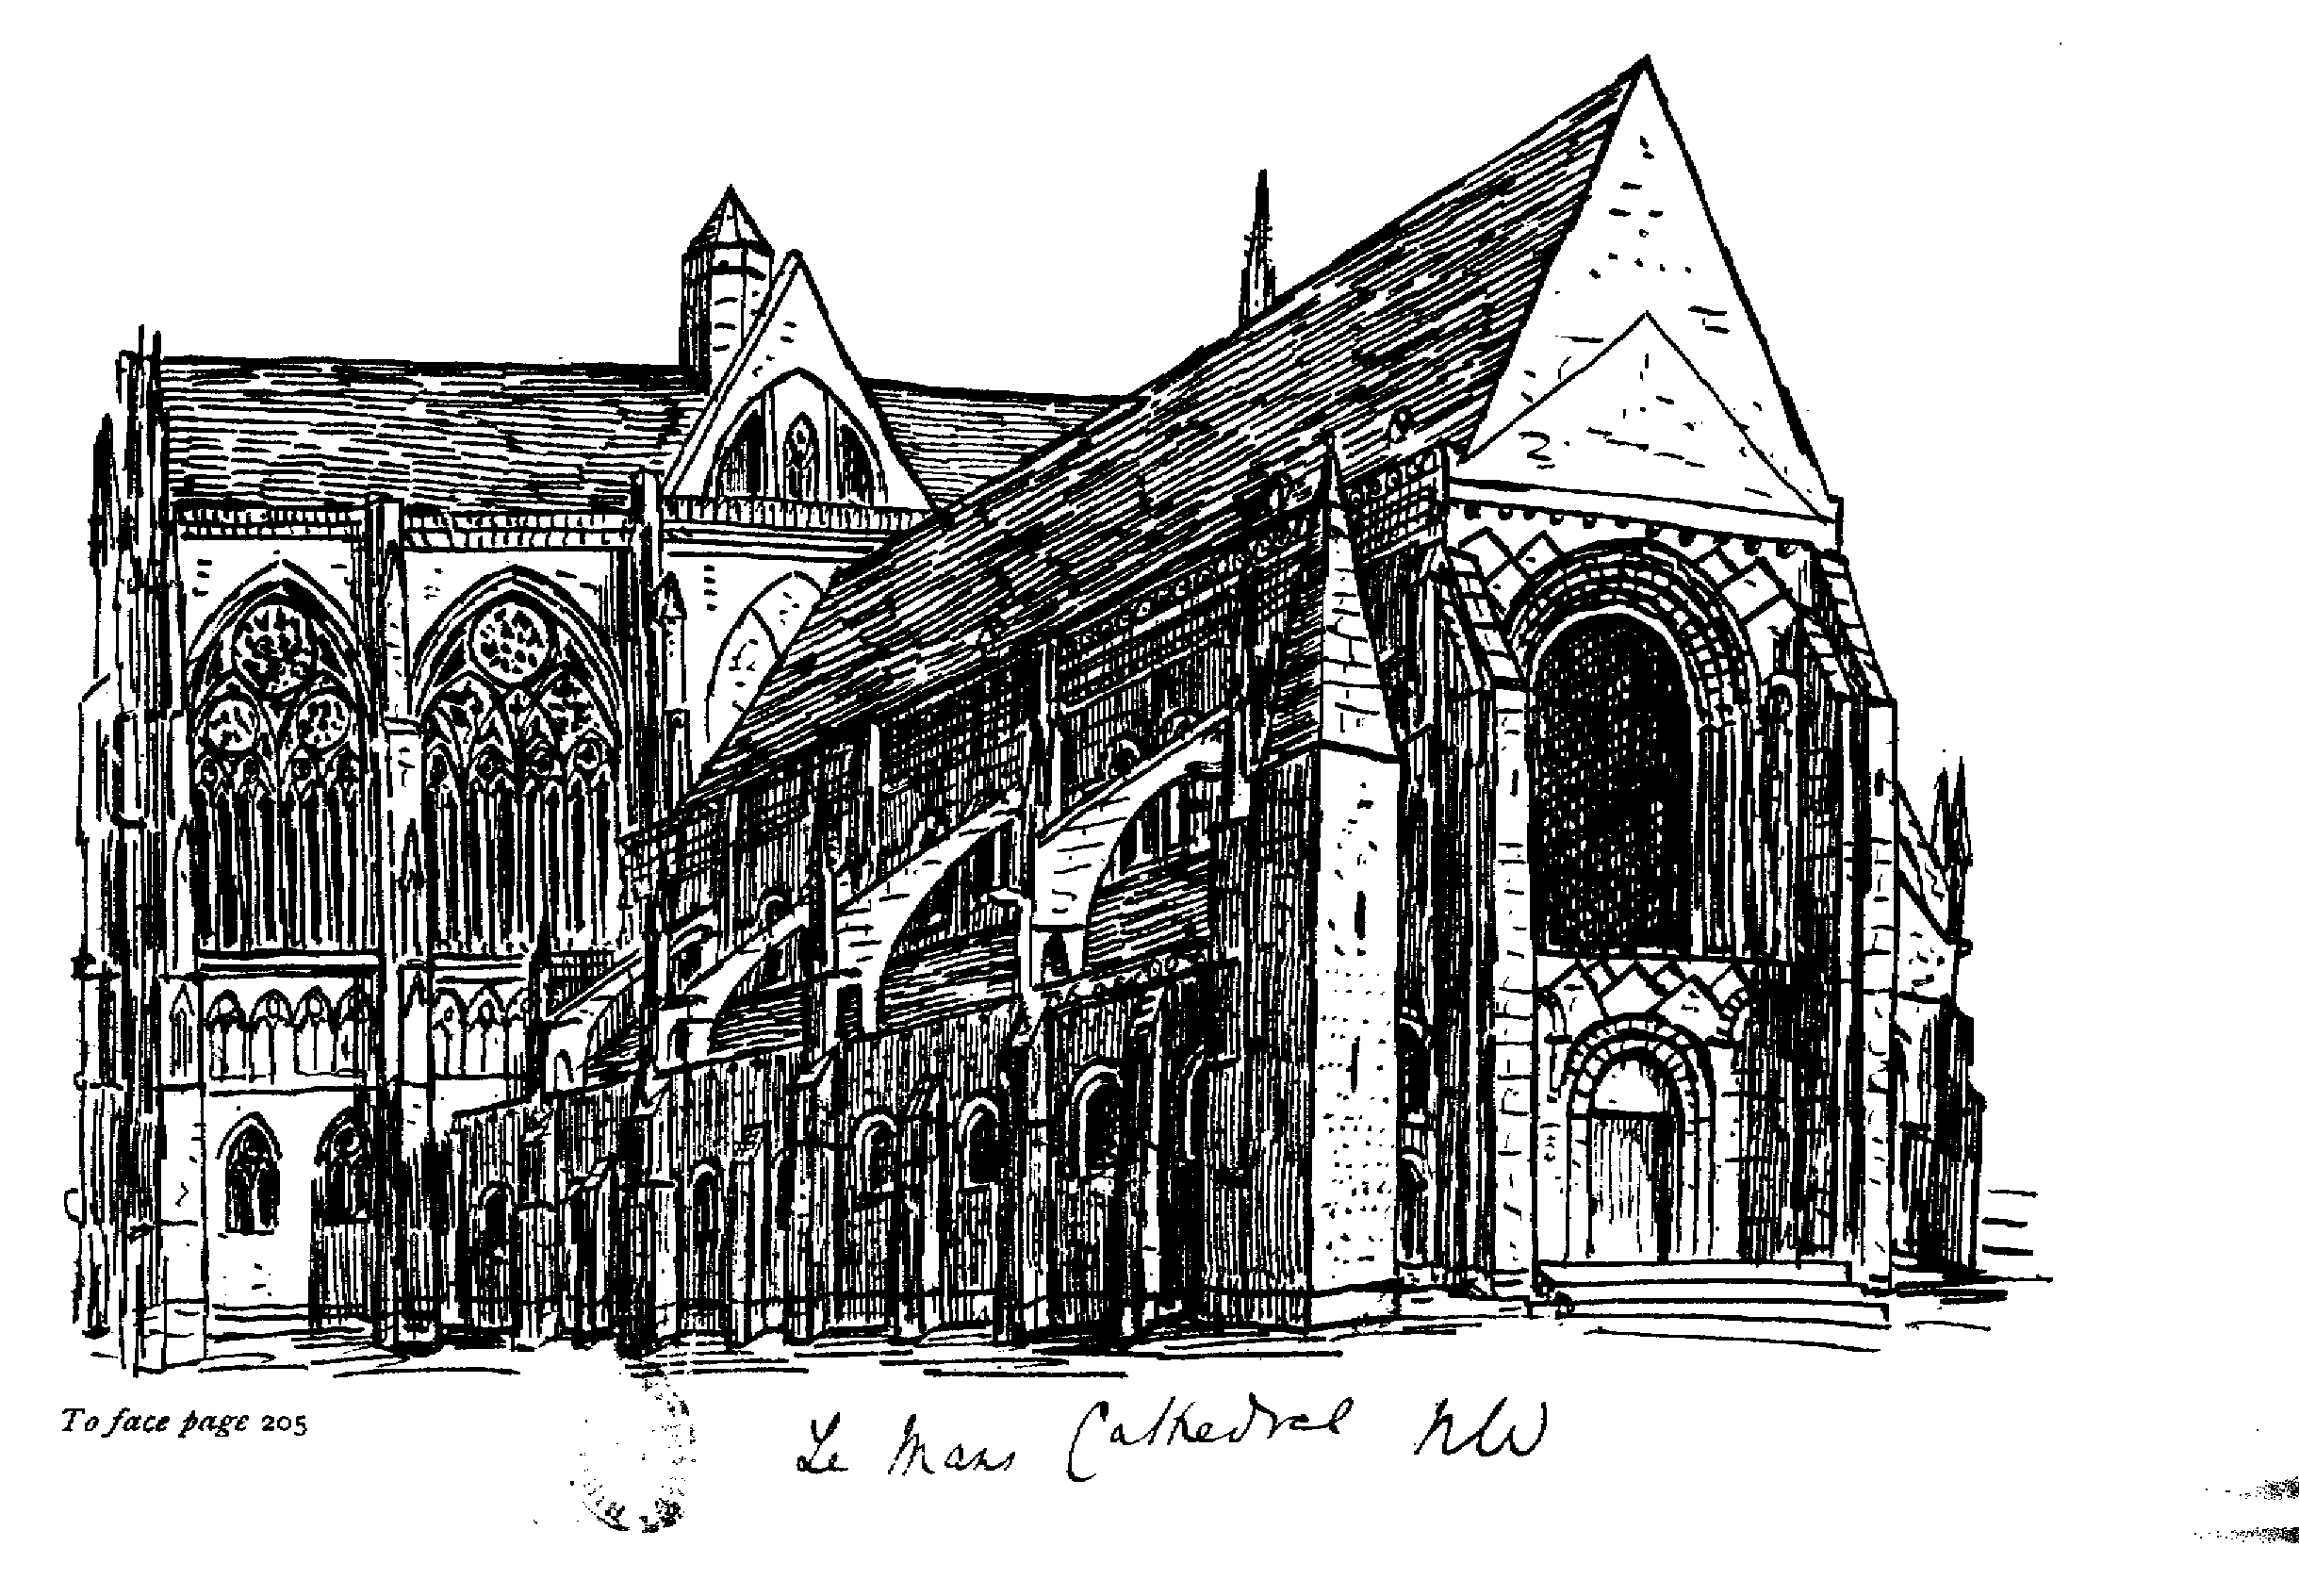 To face page 205
Le Mans Cathedral NW